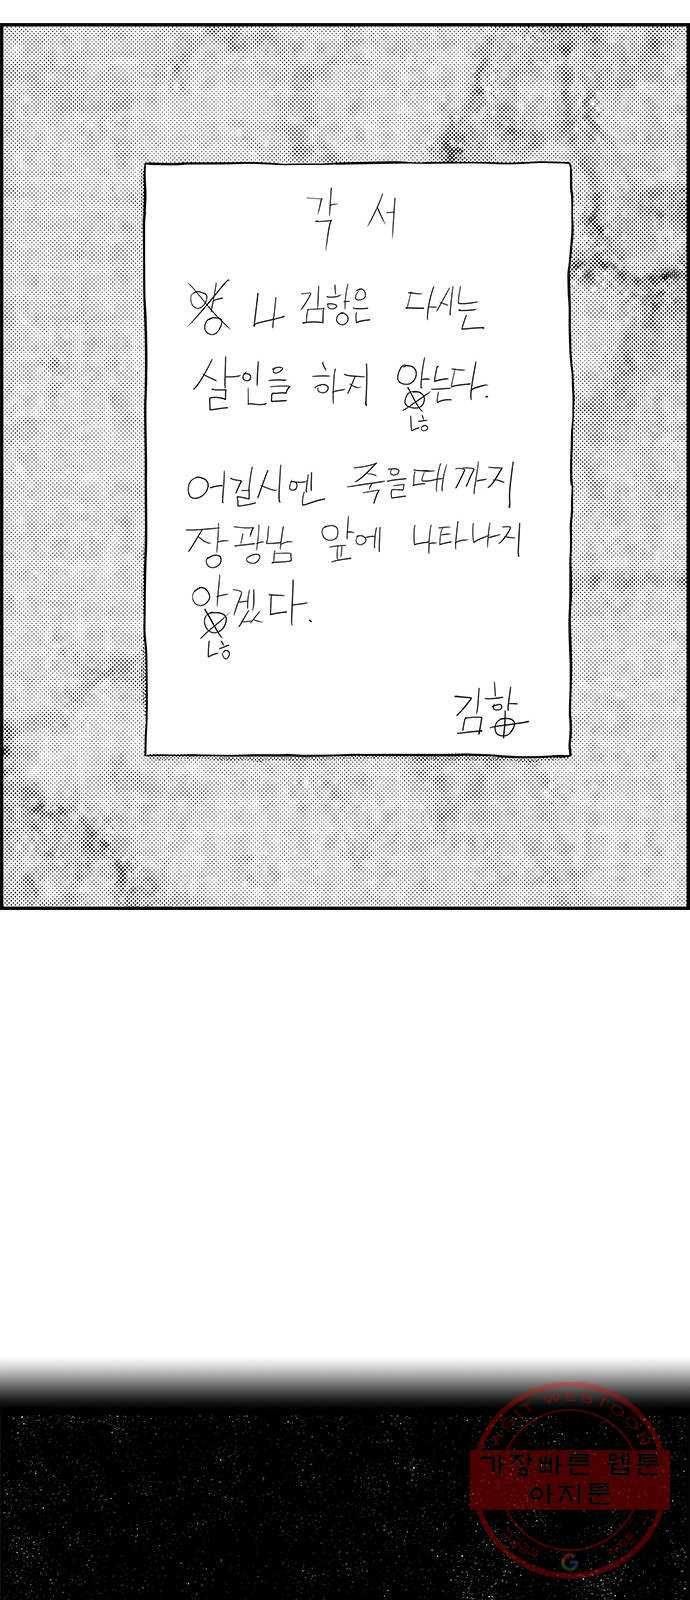 각 서
나 김항은 다시는
살인을 하지 않는다.
어길시엔 죽을때까지
장광남 앞에 나타나지
않겠다.
김항
가장빠른 웹툰
아지툰